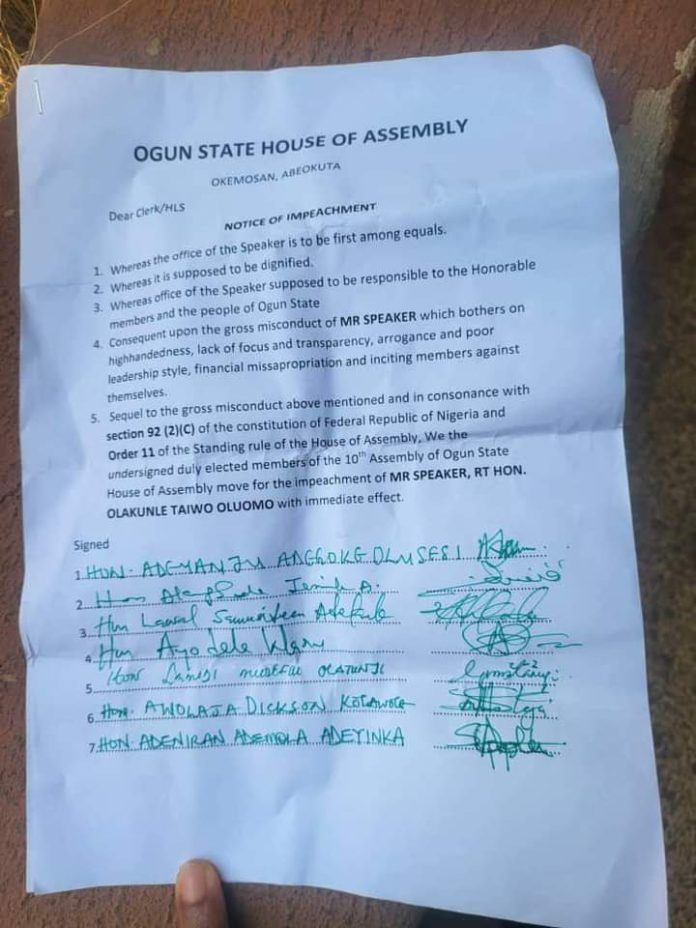 OGUN STATE HOUSE OF ASSEMBLY
OKEMOSAN, ABEOKUTA
Dear Clerk/HLS
NOTICE OF IMPEACHMENT
1. Whereas the office of the Speaker is to be first among equals.
2. Whereas it is supposed to be dignified.
3. Whereas office of the Speaker supposed to be responsible to the Honorable
members and the people of Ogun State
4. Consequent upon the gross misconduct of MR SPEAKER which bothers on
highhandedness, lack of focus and transparency, arrogance and poor
leadership style, financial missapropriation and inciting members against
themselves.
5. Sequel to the gross misconduct above mentioned and in consonance with
section 92 (2)(C) of the constitution of Federal Republic of Nigeria and
Order 11 of the Standing rule of the House of Assembly, We the
undersigned duly elected members of the 10th Assembly of Ogun State
House of Assembly move for the impeachment of MR SPEAKER, RT HON.
OLAKUNLE TAIWO OLUOMO with immediate effect.
Signed
1. HON. ADEYANJU ADEGOKE OLUSESI
2. Hon
3. Hon Lawal
4. Hon Ayodele
5. Hon LAMIDI OLATUNJI
6. Hon. AWOLAJA DICKSON KOLAWOLE
7. HON. ADENIRAN ADEMOLA ADEYINKA